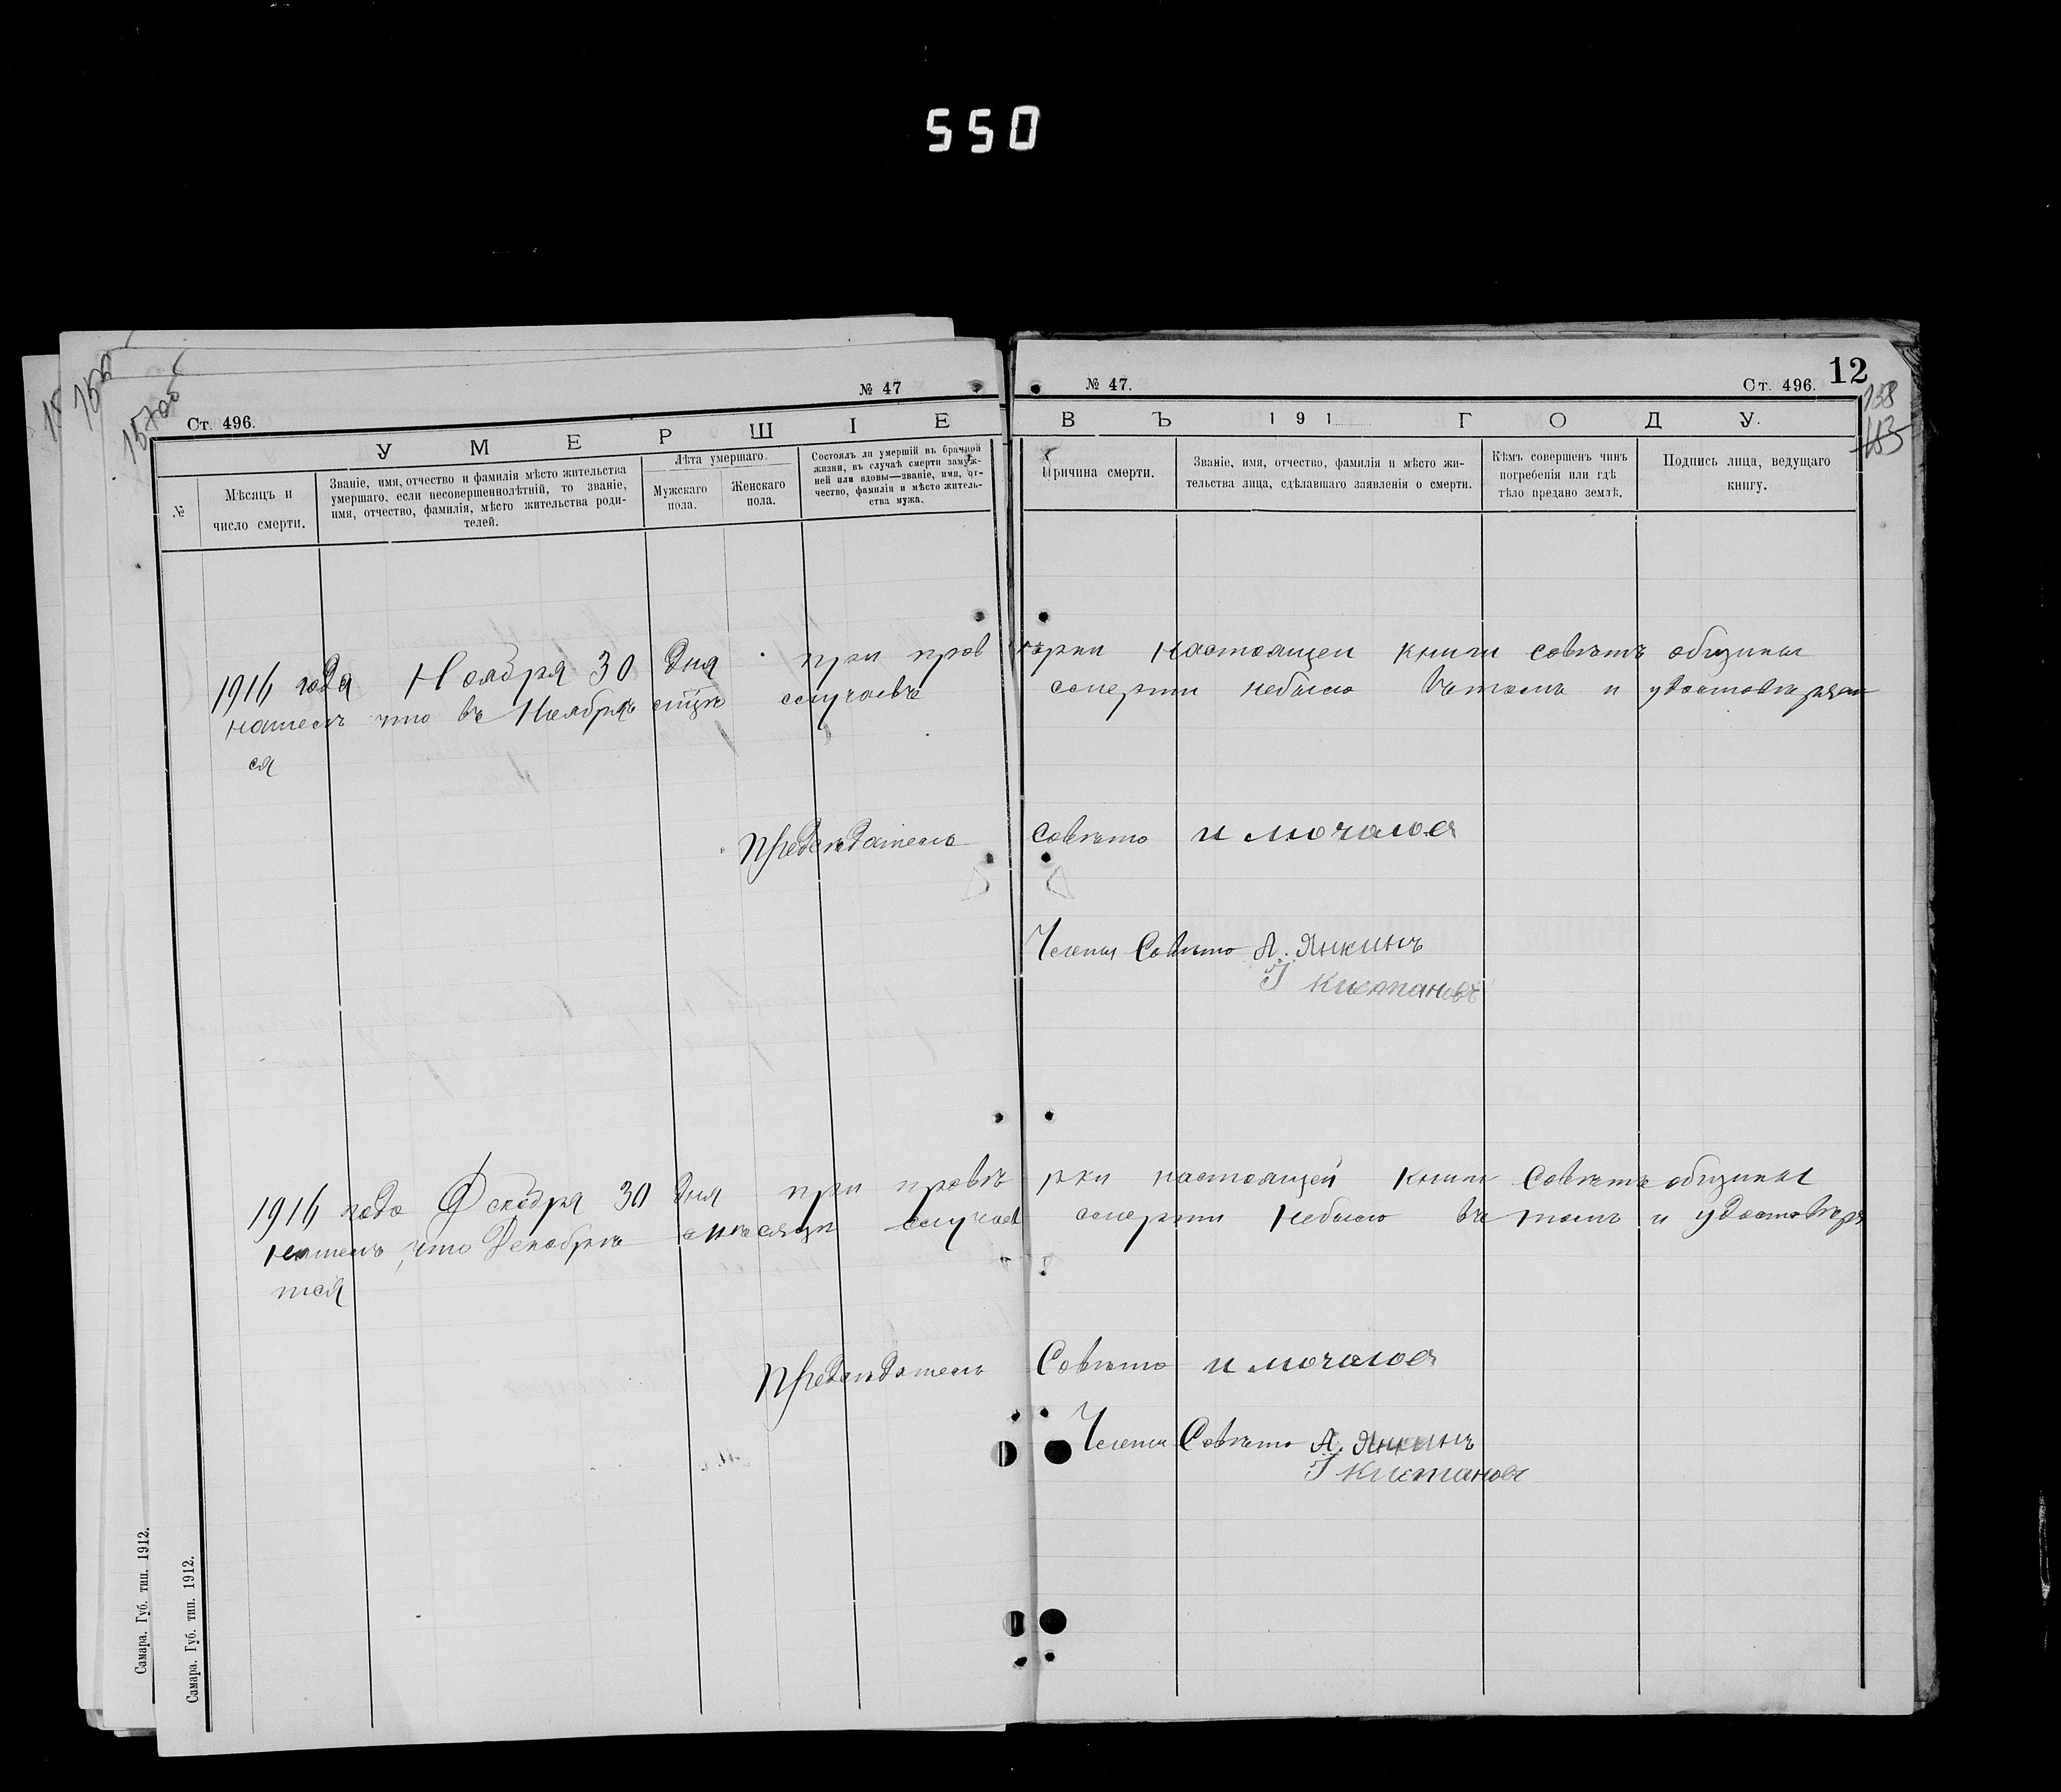 550
Ст. 496.
№ 47
№ 47.
Ст. 496.
12
138
113
УМЕРШІЕ
ВЪ 191 ГОДУ.
№
Мѣсяцъ и
число смерти.
Званіе, имя, отчество и фамилія мѣсто жительства
умершаго, если несовершеннолѣтній, то званіе,
имя, отчество, фамилія, мѣсто жительства роди-
телей.
Лѣта умершаго.
Мужскаго
пола.
Женскаго
пола.
Состоялъ ли умершій въ брачной
жизни, въ случаѣ смерти замуж-
ней или вдовы—званіе, имя, от-
чество, фамилія и мѣсто житель-
ства мужа.
Причина смерти.
Званіе, имя, отчество, фамилія и мѣсто жи-
тельства лица, сдѣлавшаго заявленія о смерти.
Кѣмъ совершенъ чинъ
погребенія или гдѣ
тѣло предано землѣ.
Подпись лица, ведущаго
книгу.
1916 года Ноября 30 дня при провѣрки настоящеи книги совѣтъ общины
нашелъ что въ Ноябрѣ мцѣ случаевъ смерти небыло вътомъ и удостовѣряет
ся
Предсѣдатель Совѣта и мочалов
Члены Совѣта А. Янкинъ
I Кистановъ
1916 года Декабря 30 дня при провѣрки настоящей книги Совѣтъ общины
нашелъ, что Декабрѣ мѣсяцѣ случаев смерти небыло въ томъ и удостовѣря
тся
Предсѣдатель Совѣта и мочалов
Члены Совѣта А. Янкинъ
I Кистановъ
Самара. Губ. тип. 1912.
Самара. Губ. тип. 1912.